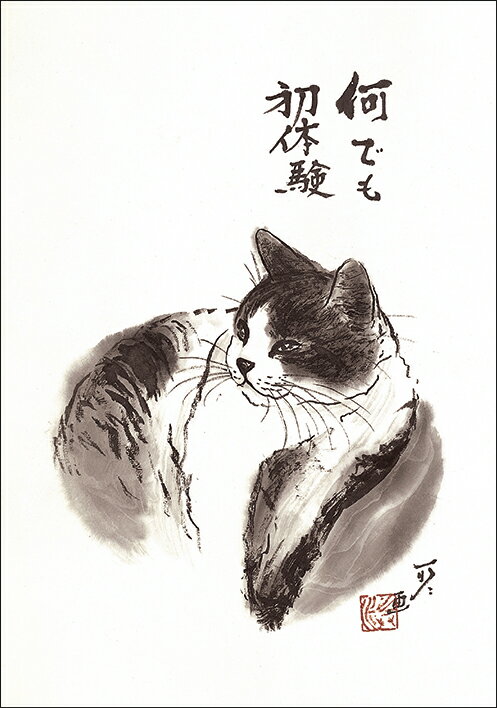 何でも
初体験
画